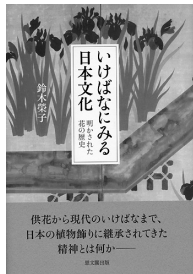 いけばなにみる
日本文化
明かされた
花の歴史
鈴木榮子
供花から現代のいけばなまで、
日本の植物飾りに継承されてきた
精神とは何か――
思文閣出版